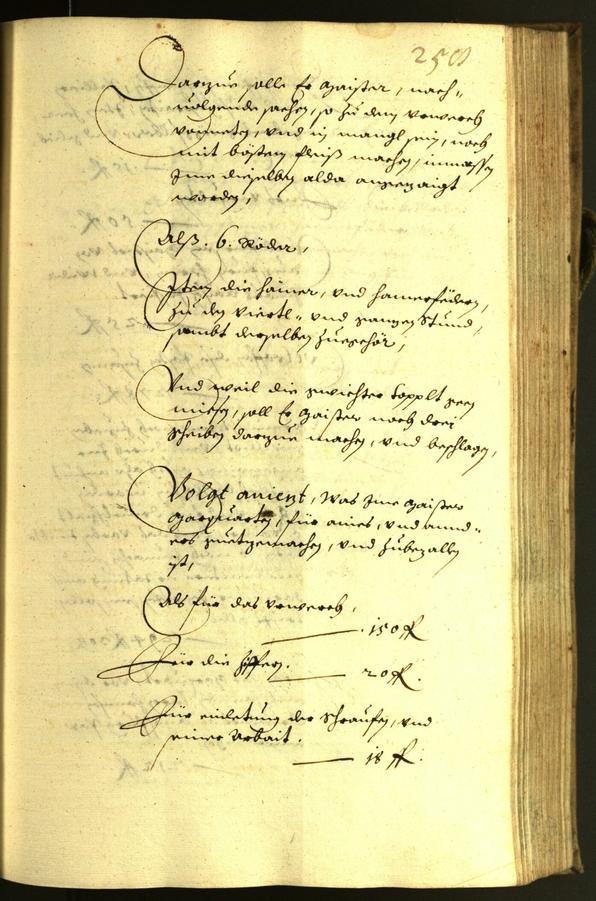 250
Darzue solle Er Maister, nach-
uolgende sachen, so zu dem Urwerch
vonneten, und in mangl sein, noch
mit bösten fleiß machen, inmassen
Ime dieselben alda angezaigt
worden,
Alß. 6. Röder,
Item die hämer, und hamerfedern,
zu den viertl- und ganzen Stund,
sambt derselben zuegehör,
Und weil die gwichter topplt geen
miessen, soll Er Maister noch drei
Scheiben darzue machen, und beschlagen,
Volgt aniezt, was Ime Maister
für aines, und annd-
ers guetzemachen, und zubezallen
ist,
Als für das Urwerch,
150 fl
Für die
20 fl.
Für einletung der Schraufen, und
seiner Arbait.
18 fl.